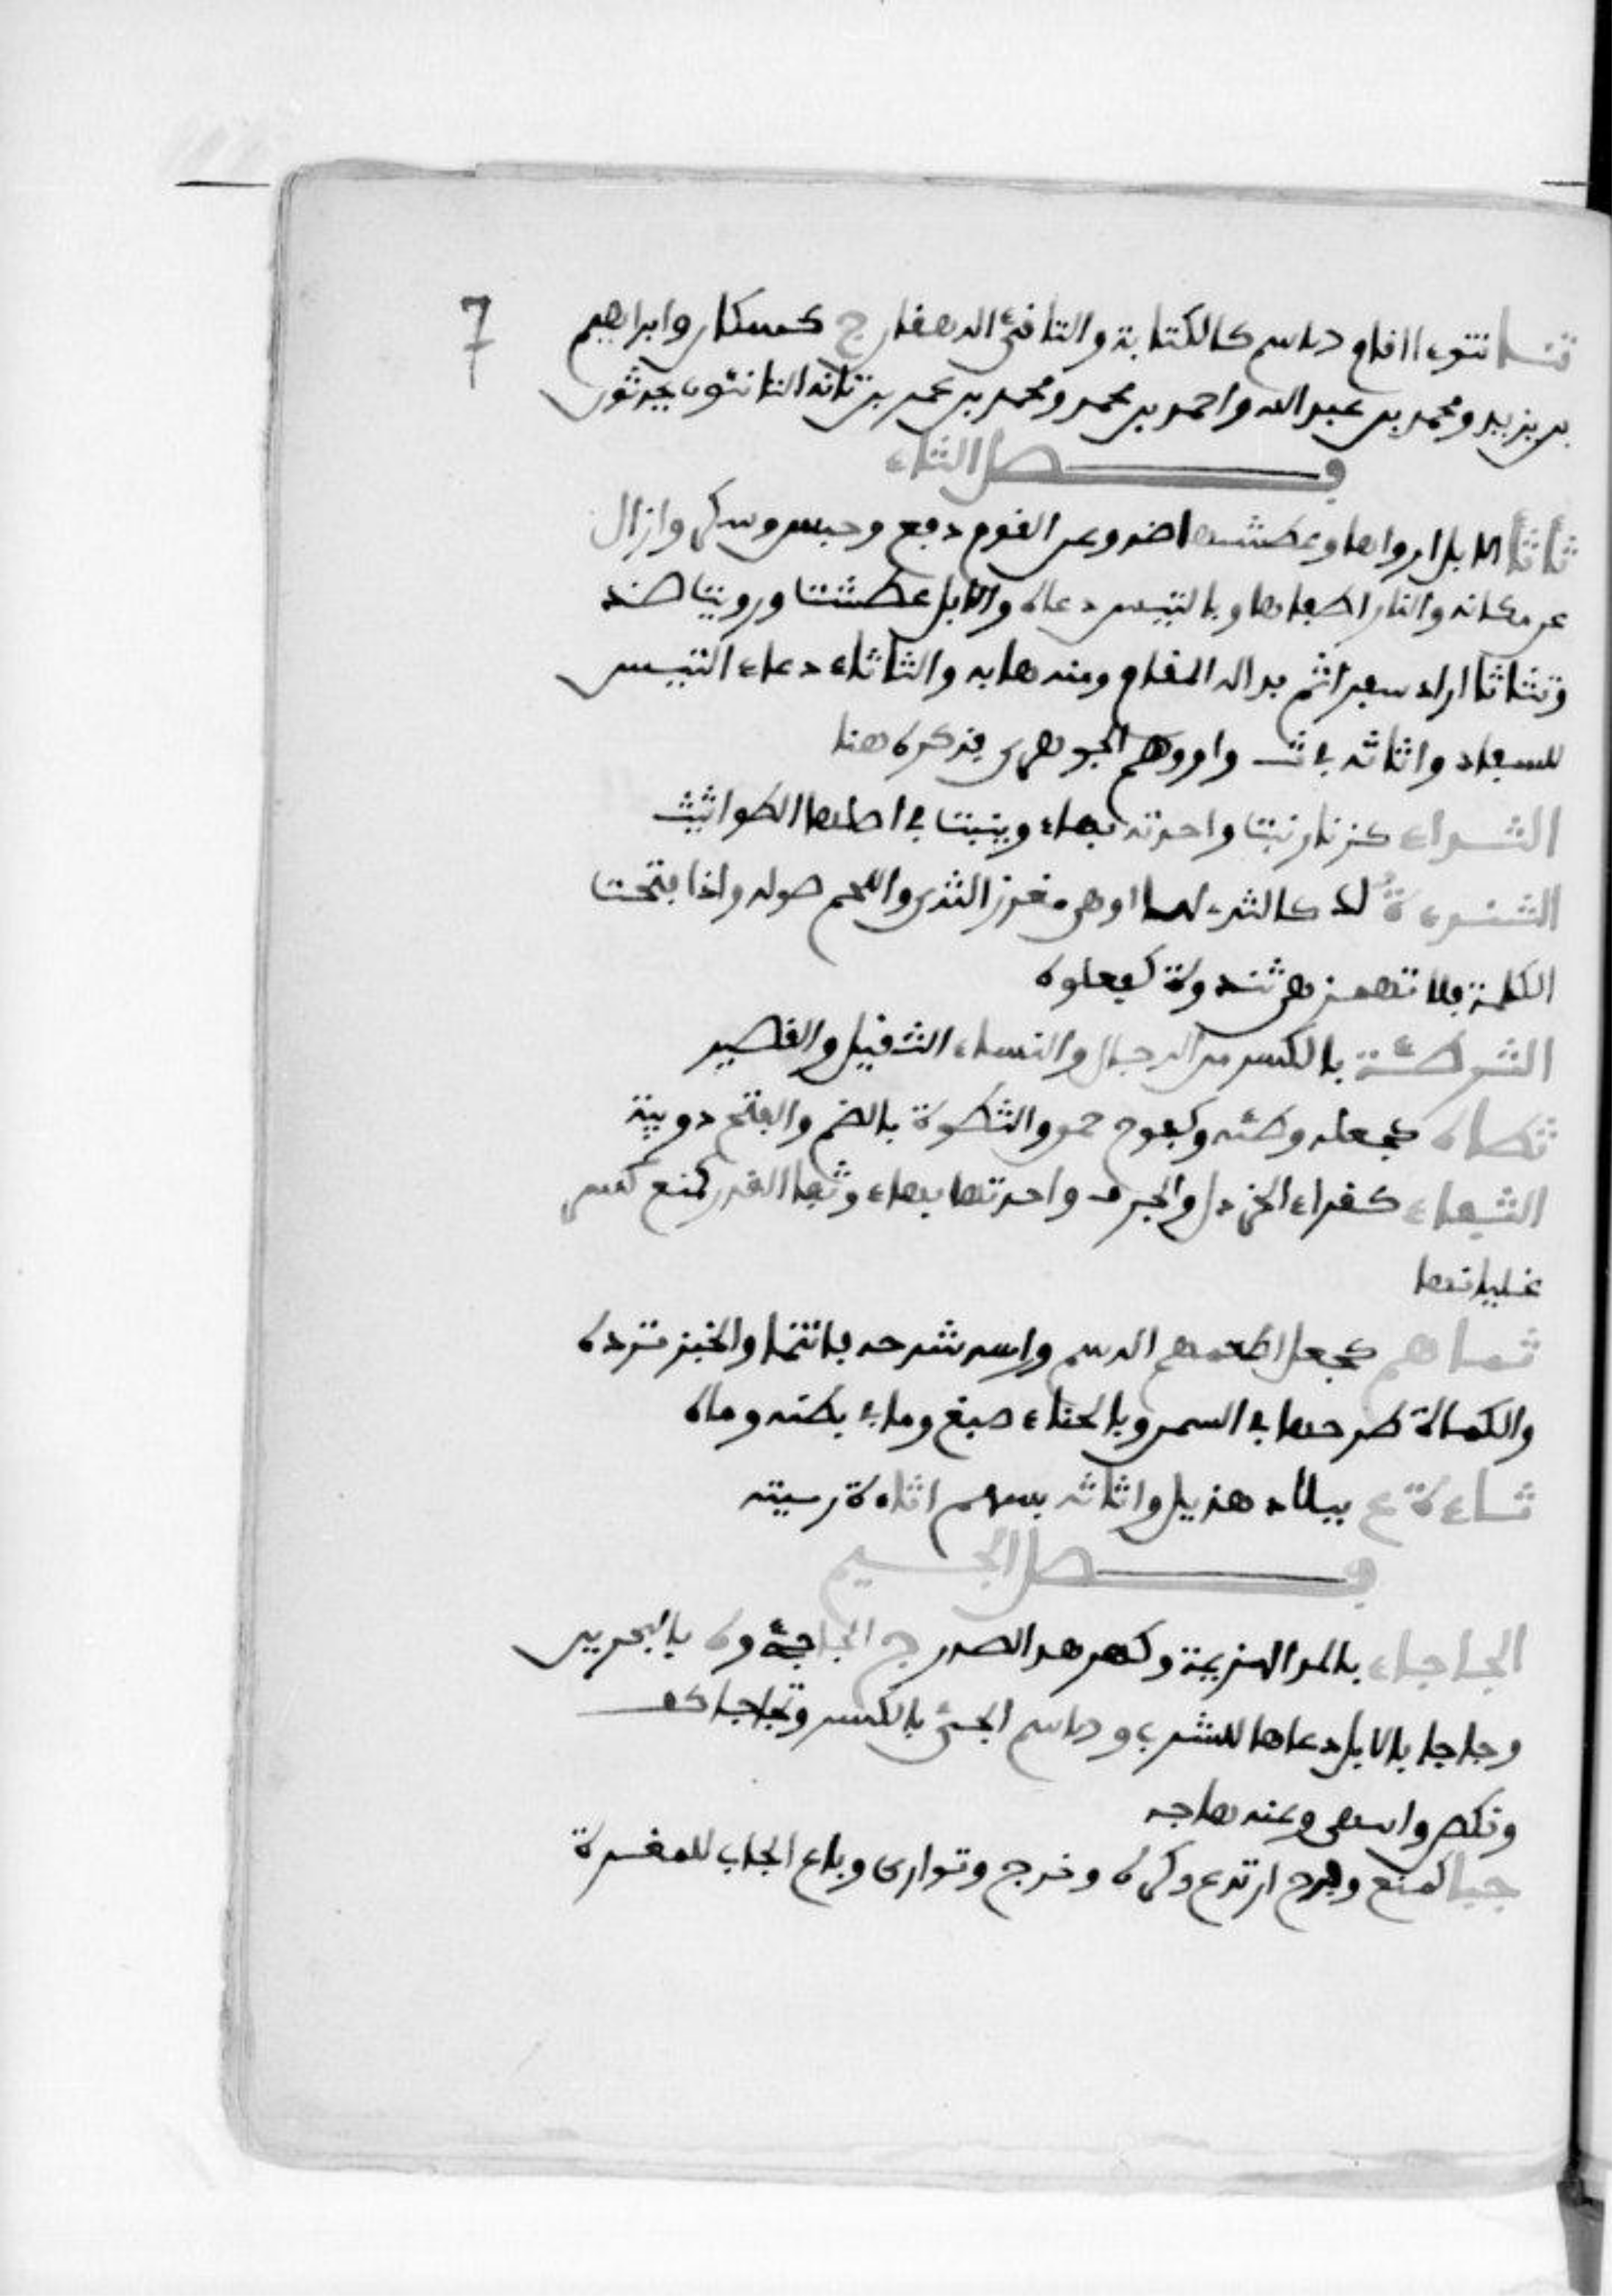 7
تنا تنوءا اقام والاسم كالكتابة والتانئ الدهقان ج كسكان وابراهيم
بن يزيد ومحمد بن عبد الله واحمد بن محمد ومحمد بن عمر بن تانه التانئون محدثون
فصل الثاء
ثأثأ الابل ارواها وعطشها ضد وعن القوم دفع وحبس وسكن وازال
عن مكانه والنار اطفاها وبالتيس دعاه والابل عطشت ورويت ضد
وتثاثا اراد سفرا ثم بدا له المقام ومنه هابه والثاثاء دعاء التيس
للسفاد واثاثه في ث واو ووهم الجوهري فذكره هنا
الثداء كزنار نبت واحدته بهاء وينبت في اصلها الطراثيث
الثندءة لك كالثدي لها او هي مغرز الثدي واللحم حوله واذا فتحت
الكلمة فلا تهمز هي ثندوة كفعلوة
الثرطئة بالكسر من الرجال والنساء الثقيل والقصير
ثطاه كجعله وطئه وكفرح حمق والثطوة بالضم والفتح دويبة
الثفاء كقراء الخردل والحرف واحدتها بهاء وثفا القدر كمنع كسر
غليانها
ثماهم كجعل اطعمهم الدسم وراسه شدخه فانثما والخبز ثرده
والكماة طرحها في السمن وبالحناء صبغ وما في بطنه رماه
ثاءة ع ببلاد هذيل واثاثه بسهم اثاءة رميته
فصل الجيم
الجاجاء بالمد الهزيمة وكهدهد الصدر ج الجاجئ وة بالبحرين
وجاجا بالابل دعاها للشرب والاسم الجئ بالكسر وتجاجا كف
ونكص وانتهى وعنه هابه
جبا كمنع وفرح ارتدع وكره وخرج وتوارى وباع الجاب للمغرة